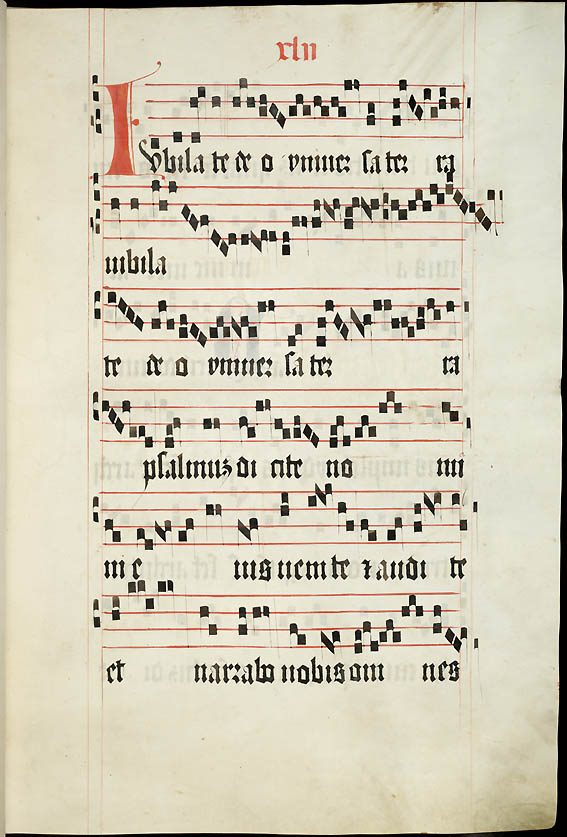 xlii
Iubila te de o vniuer sa ter ra
iubila
te de o vniuer sa ter ra
psalmuz di cite no mi
ni e ius uenite & audi te
et narrabo uobis om nes